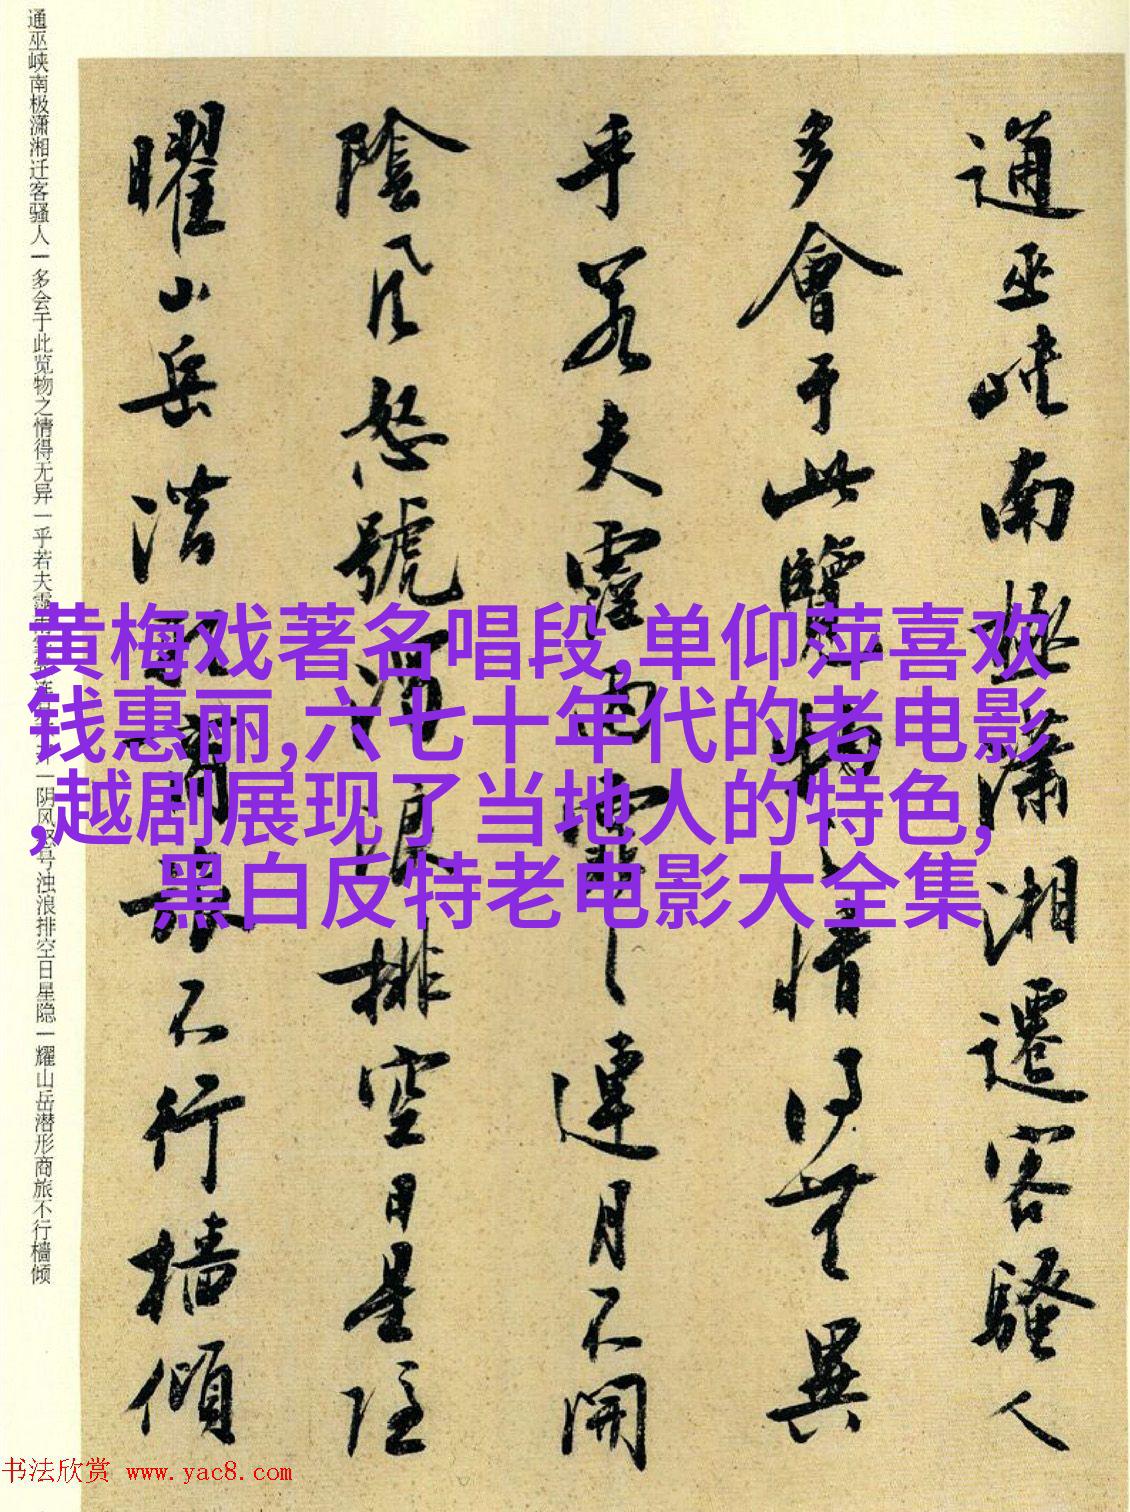 通巫峡南极潇湘迁客骚人|多会于此览物之情得无异|乎若夫霪雨霏霏连月不开|阴风怒号浊浪排空日星隐|耀山岳潜形商旅不行檣倾
通巫峽南極瀟湘遷客騷人
多會于此覽物之情得無異
乎若夫霪雨霏霏連月不開
陰風怒號濁浪排空日星隱
曜山岳潛形商旅不行檣傾
黄梅戏著名唱段,单仰萍喜欢
钱惠丽,六七十年代的老电影
,越剧展现了当地人的特色,
黑白反特老电影大全集
书法欣赏 www.yac8.com